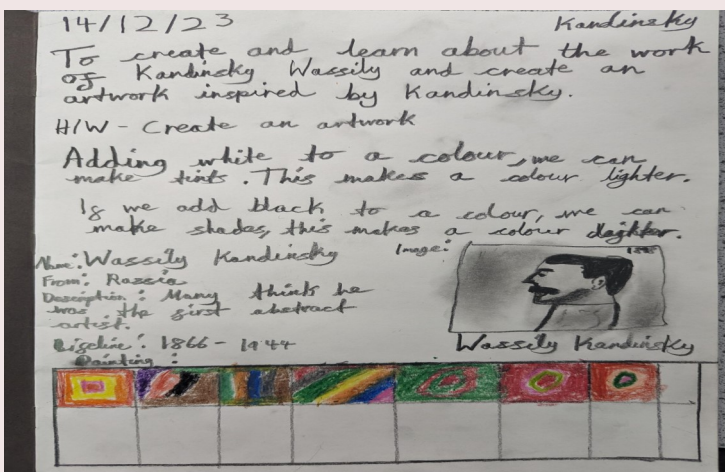 14/12/23 Kandinsky
To create and learn about the work
of Kandinsky Wassily and create an
artwork inspired by Kandinsky.
H/W - Create an artwork
Adding white to a colour, we can
make tints. This makes a colour lighter.
If we add black to a colour, we can
make shades, this makes a colour daghter.
Name: Wassily Kandinsky Image:
From: Russia
Description: Many think he
was the first abstract
artist.
Lifeline: 1866 - 1944 Wassily Kandinsky
Painting: